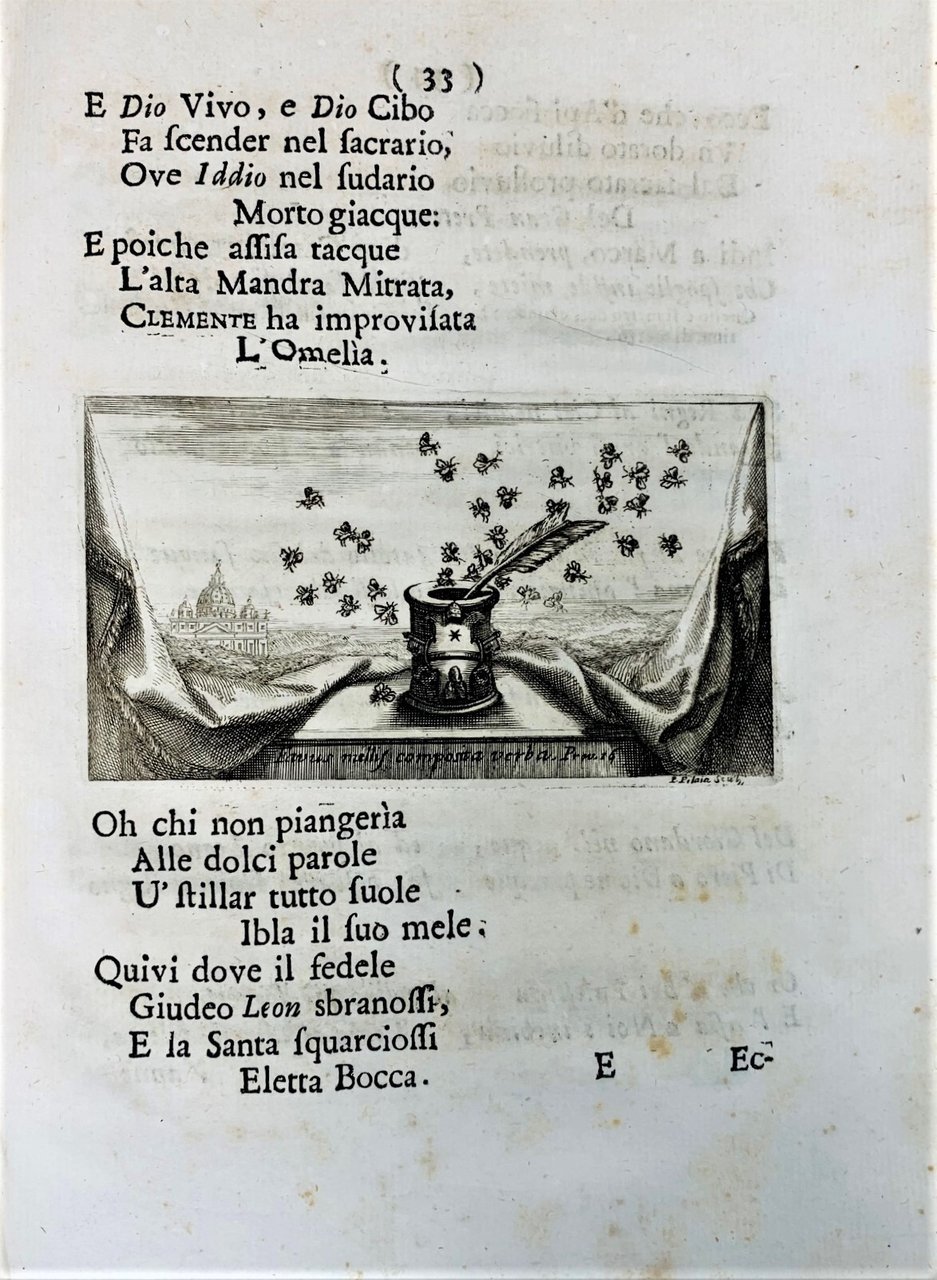 ( 33 )
E Dio Vivo, e Dio Cibo
Fa ſcender nel ſacrario,
Ove Iddio nel ſudario
Morto giacque:
E poiche aſſiſa tacque
L'alta Mandra Mitrata,
CLEMENTE ha improviſata
L'Omelìa.
Favus mellis composita verba. Prov. 16
Sculp.
Oh chi non piangerìa
Alle dolci parole
U' ſtillar tutto ſuole
Ibla il ſuo mele;
Quivi dove il fedele
Giudeo Leon sbranoſſi,
E la Santa ſquarcioſſi
Eletta Bocca.
E Ec-